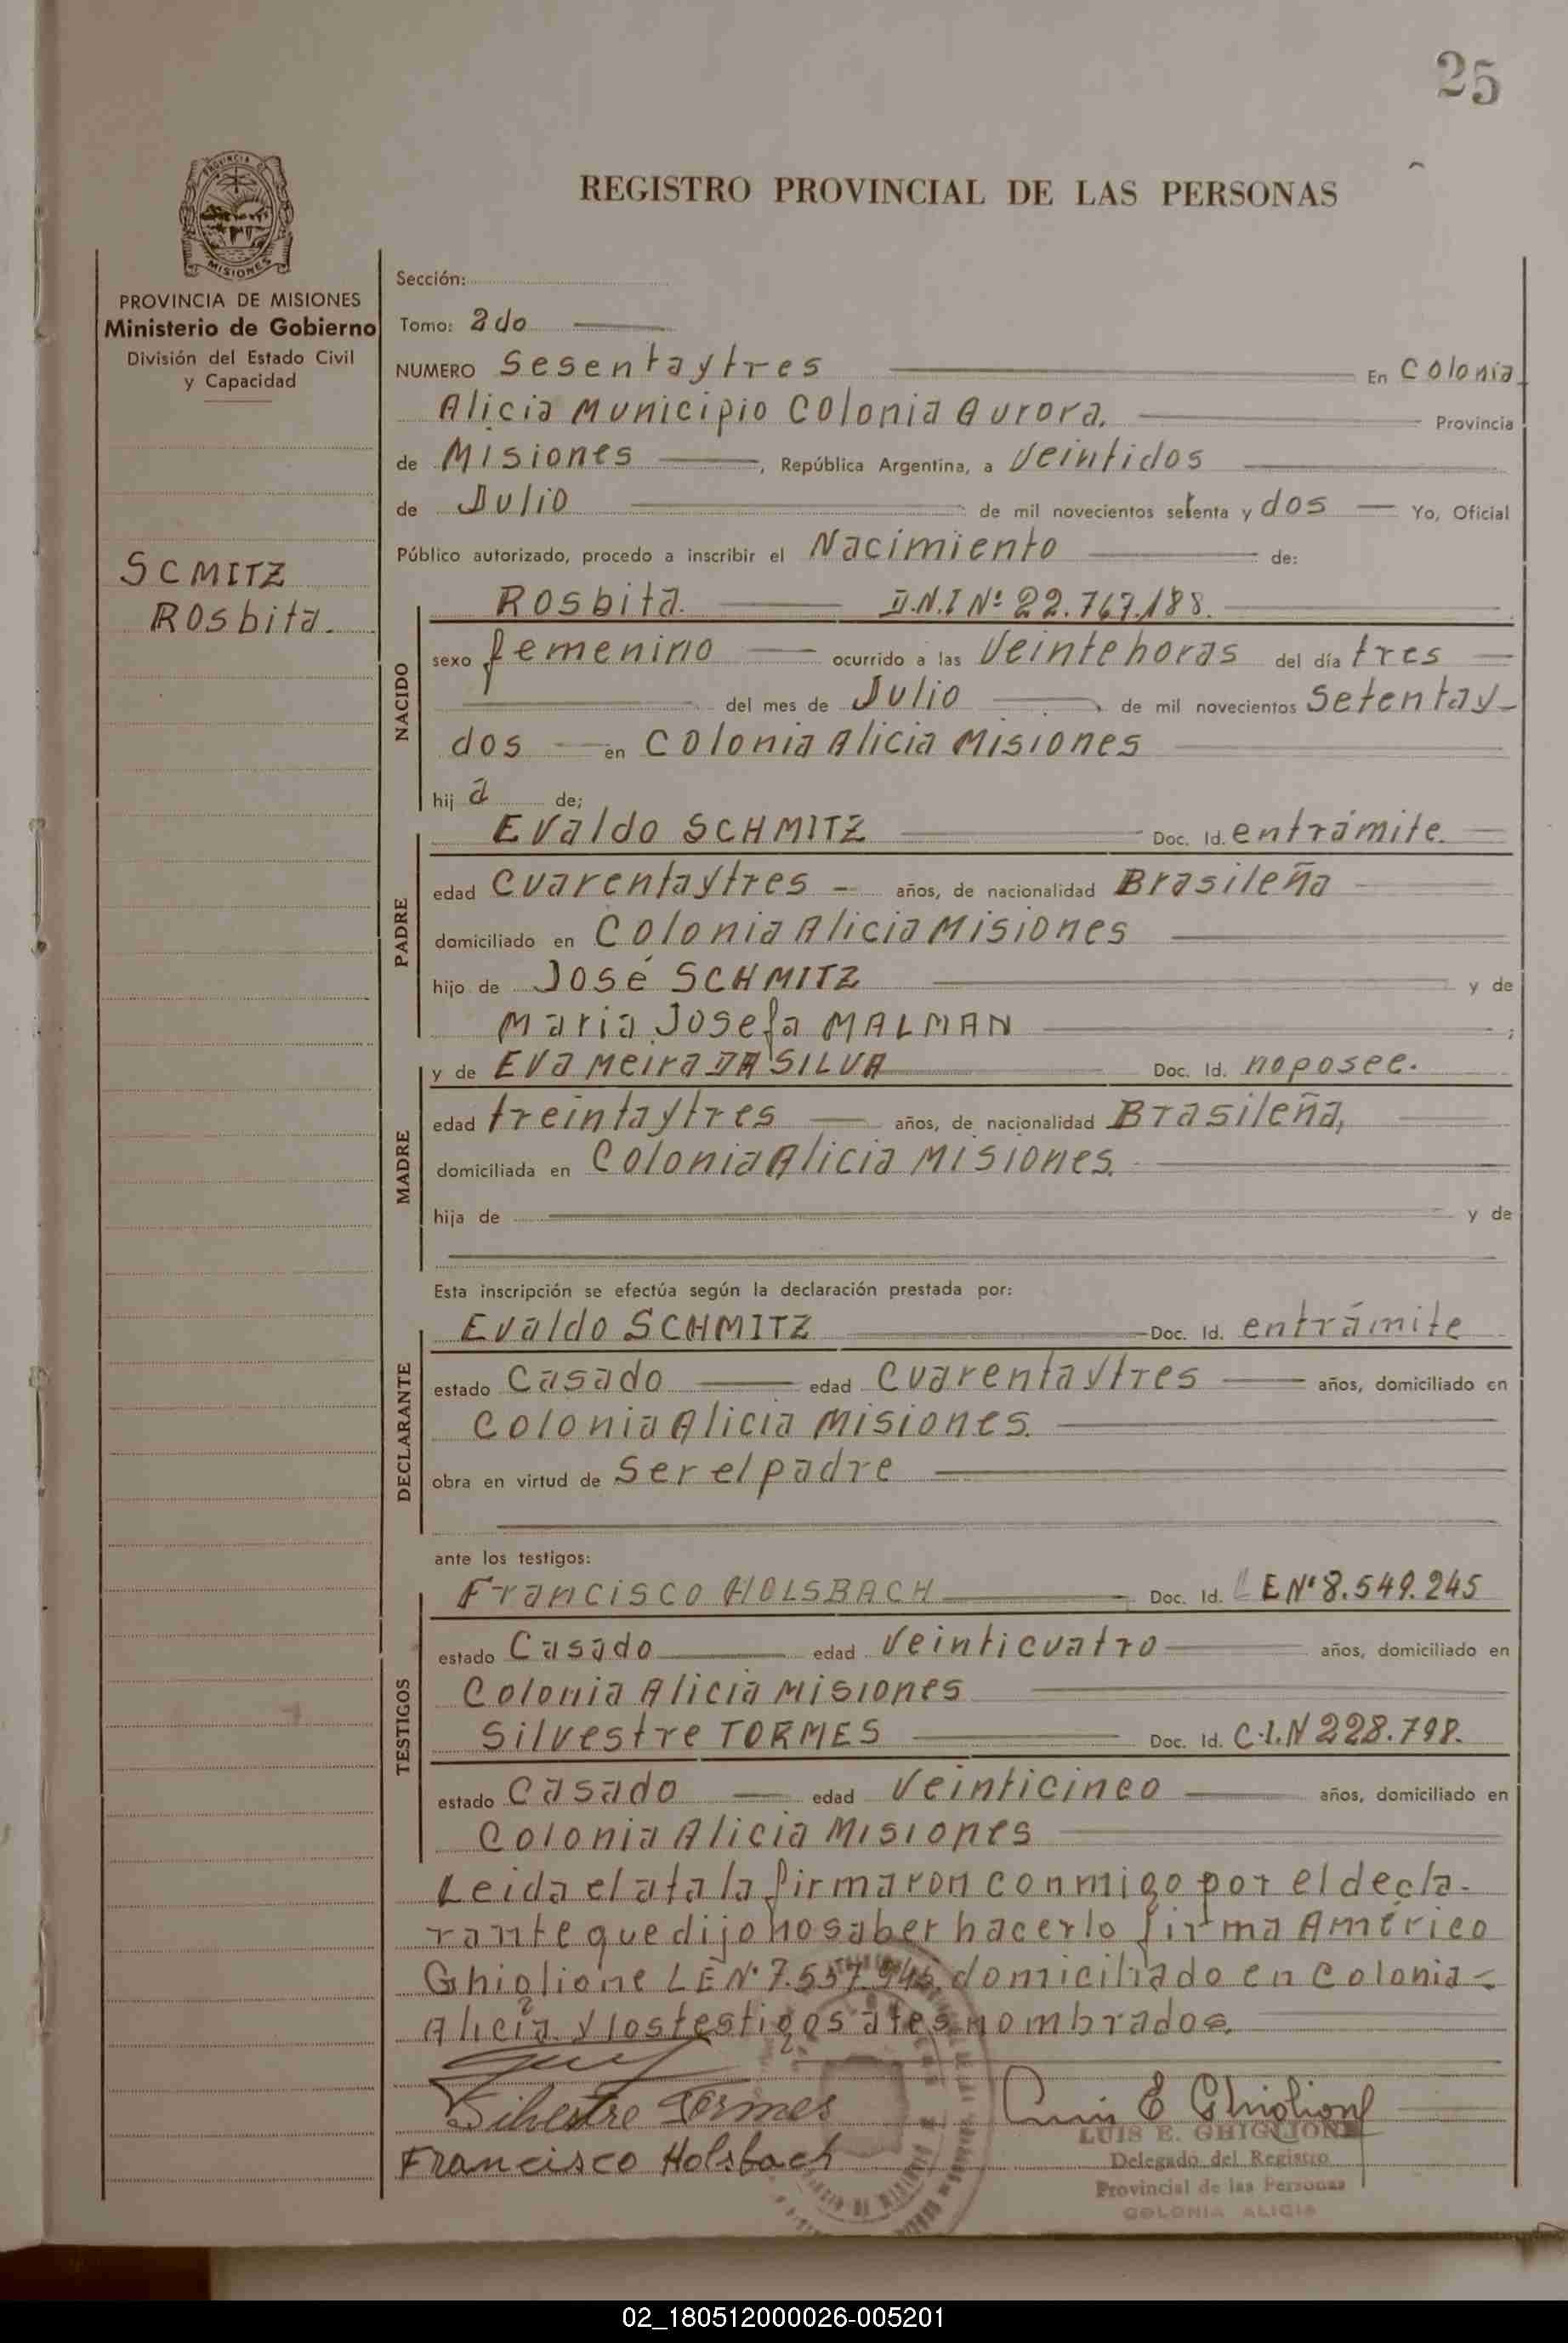 25
REGISTRO PROVINCIAL DE LAS PERSONAS
PROVINCIA DE MISIONES
Ministerio de Gobierno
División del Estado Civil
y Capacidad
SCMITZ
Rosbita.
Sección:
Tomo: 2do
NUMERO Sesentaytres En Colonia
Alicia Municipio Colonia Aurora. Provincia
de Misiones, República Argentina, a Veintidos
de Julio de mil novecientos setenta y dos Yo, Oficial
Público autorizado, procedo a inscribir el Nacimiento de:
NACIDO
Rosbita. D.N.I Nº 22.767.188.
sexo femenino ocurrido a las Veintehoras del día tres
del mes de Julio, de mil novecientos Setentay-
dos en Colonia Alicia Misiones
hij a de;
PADRE
Evaldo SCHMITZ Doc. Id. entrámite.
edad Cuarentaytres - años, de nacionalidad Brasileña
domiciliado en Colonia Alicia Misiones
hijo de José SCHMITZ y de
Maria Josefa MALMAN ;
MADRE
y de Eva Meira DA SILVA Doc. Id. noposee.
edad treintaytres años, de nacionalidad Brasileña,
domiciliada en Colonia Alicia Misiones.
hija de y de
Esta inscripción se efectúa según la declaración prestada por:
DECLARANTE
Evaldo SCHMITZ Doc. Id. entrámite
estado Casado edad Cuarentaytres años, domiciliado en
Colonia Alicia Misiones.
obra en virtud de Ser el padre
ante los testigos:
TESTIGOS
Francisco HOLSBACH Doc. Id. LE Nº 8.549.245
estado Casado edad Veinticuatro años, domiciliado en
Colonia Alicia Misiones
Silvestre TORMES Doc. Id. C.I.N 228.798.
estado Casado edad Veinticinco años, domiciliado en
Colonia Alicia Misiones
Leida el ata la firmaron conmigo por el decla-
rante que dijo no saber hacerlo firma Américo
Ghiglione LE Nº domiciliado en Colonia-
Alicia y los testigos ates nombrados.
Silvestre Tormes
Francisco Holsbach
Luis E Ghiglione
LUIS E. GHIGLIONE
Delegado del Registro
Provincial de las Personas
COLONIA ALICIA
02_180512000026-005201